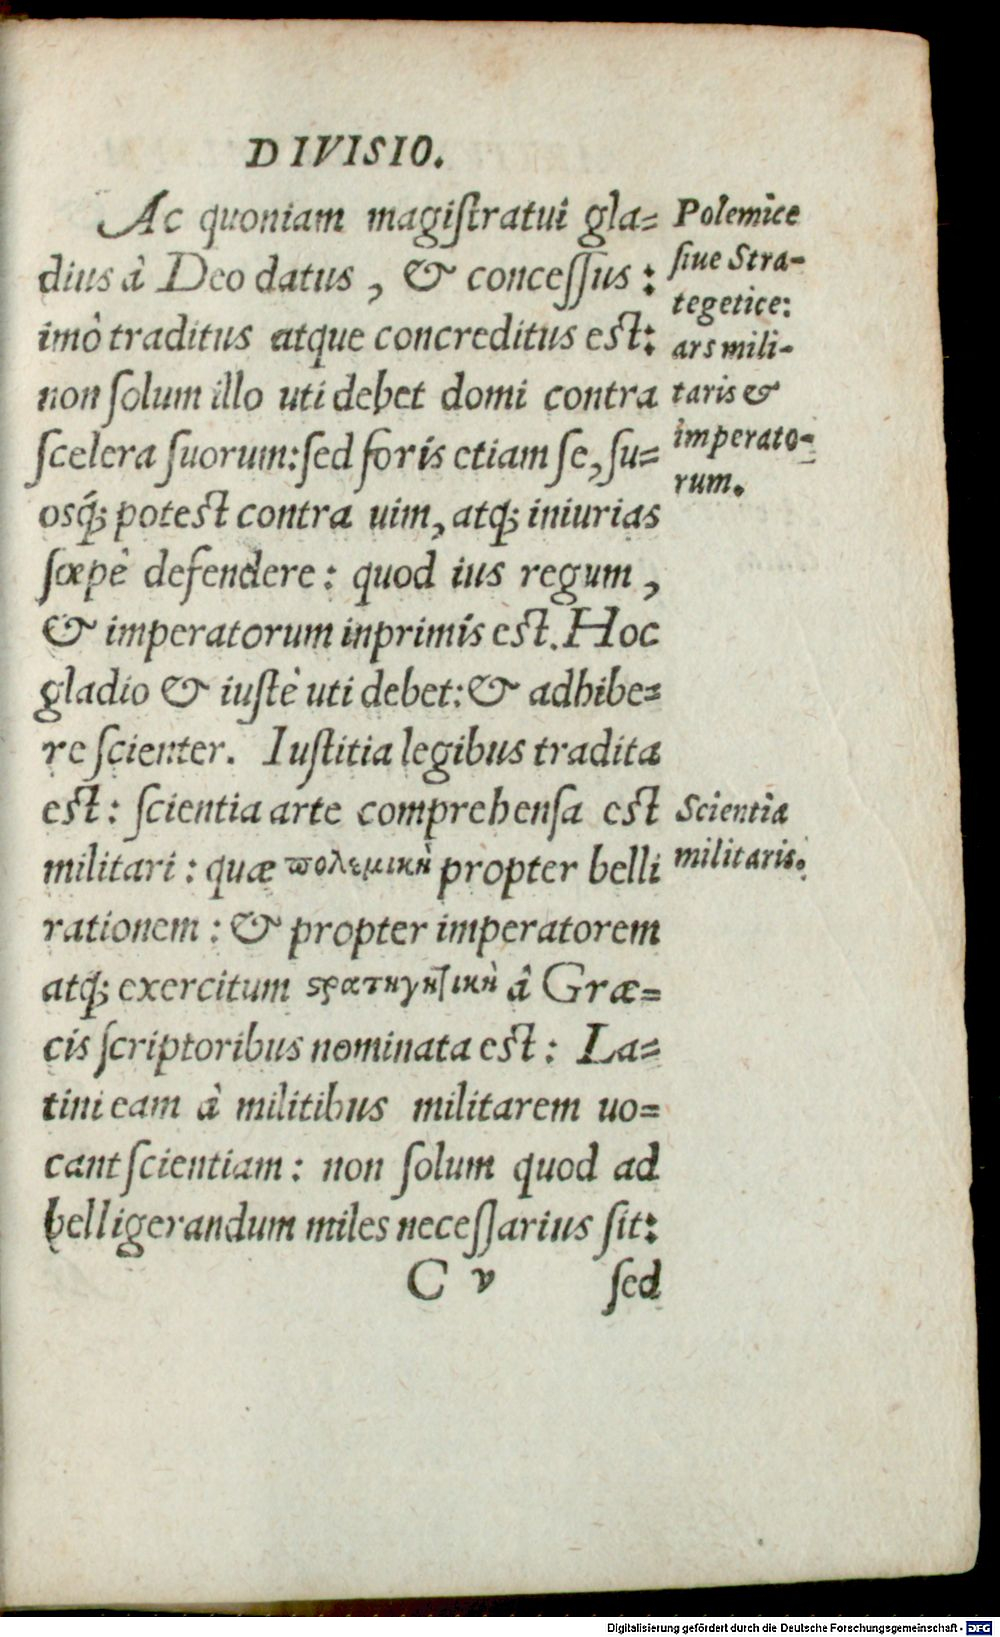 DIVISIO.
Ac quoniam magiſtratui gla=
dius à Deo datus, & conceſſus:
imò traditus atque concreditus eſt:
non ſolum illo uti debet domi contra
ſcelera ſuorum: ſed foris etiam ſe, ſu=
osq́; poteſt contra uim, atq; iniurias
ſæpè defendere: quod ius regum,
& imperatorum inprimis eſt. Hoc
gladio & iuſtè uti debet: & adhibe=
re ſcienter. Iuſtitia legibus tradita
eſt: ſcientia arte comprehenſa eſt
militari: quæ πολεμικὴ propter belli
rationem: & propter imperatorem
atq; exercitum ϛρατηγητικὴ à Græ=
cis ſcriptoribus nominata eſt: La=
tini eam à militibus militarem uo=
cant ſcientiam: non ſolum quod ad
belligerandum miles neceſſarius ſit:
C v ſed
Polemice
ſiue Stra-
tegetice:
ars mili-
taris &
imperato-
rum.
Scientia
militaris.
Digitalisierung gefördert durch die Deutsche Forschungsgemeinschaft - DFG